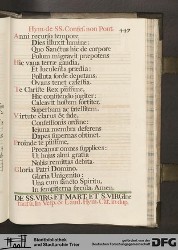 Hymn. de SS. Confess. non Pont.
Anni recurso tempore
Dies illuxit lumine:
Quo Sanctus hic de corpore
Polum migravit præpotens
Hic vana terræ gaudia,
Et luculenta prædia:
Polluta sorde deputans,
Ovans tenet cælestia.
Te Christe Rex piissime,
Hic confitendo jugiter:
Calcavit hostem fortiter,
Superbum ac satellitem.
Virtute clarus & fide,
Confessionis ordine:
Jejuna membra deferens
Dapes supernas obtinet.
Proinde te piissime,
Precamur omnes supplices:
Ut hujus almi gratia
Nobis remittas debita
Gloria Patri Domino,
Gloria Unigenito:
Una cum Sancto Spiritu,
In sempiterna sæcula. Amen.
DE SS. VIRG. ET MART. ET S. VIRG.
Bistthidl-ithek
und Stadtarchiv Trier
Gefördert durch
DFG